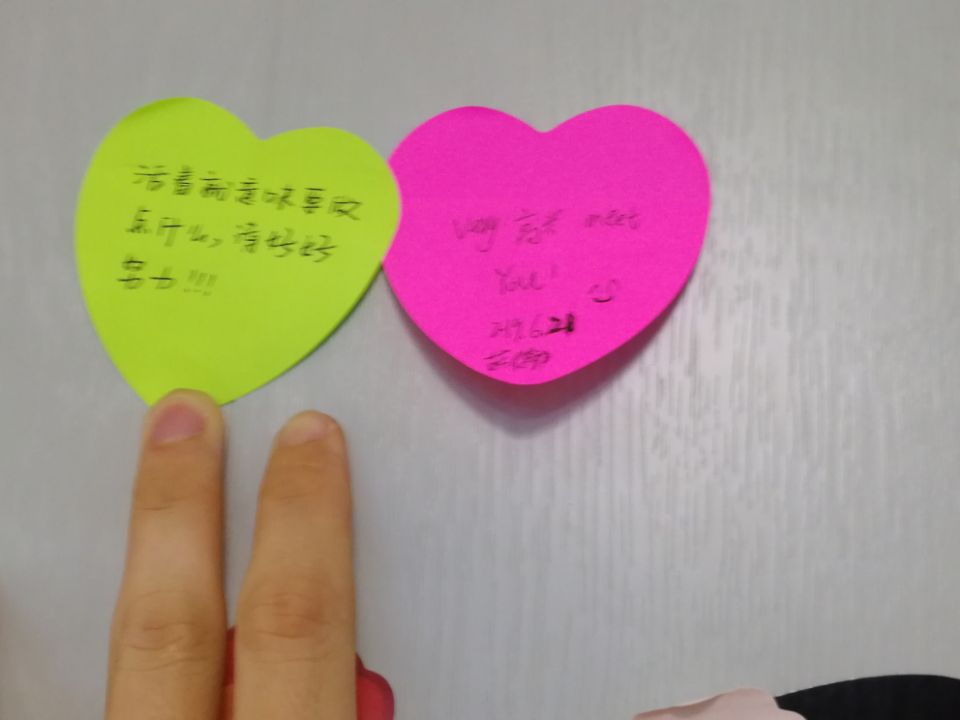 活着就意味要做
点什么,请好好
努力!!!
very 高兴 meet
You!
2019.6.21